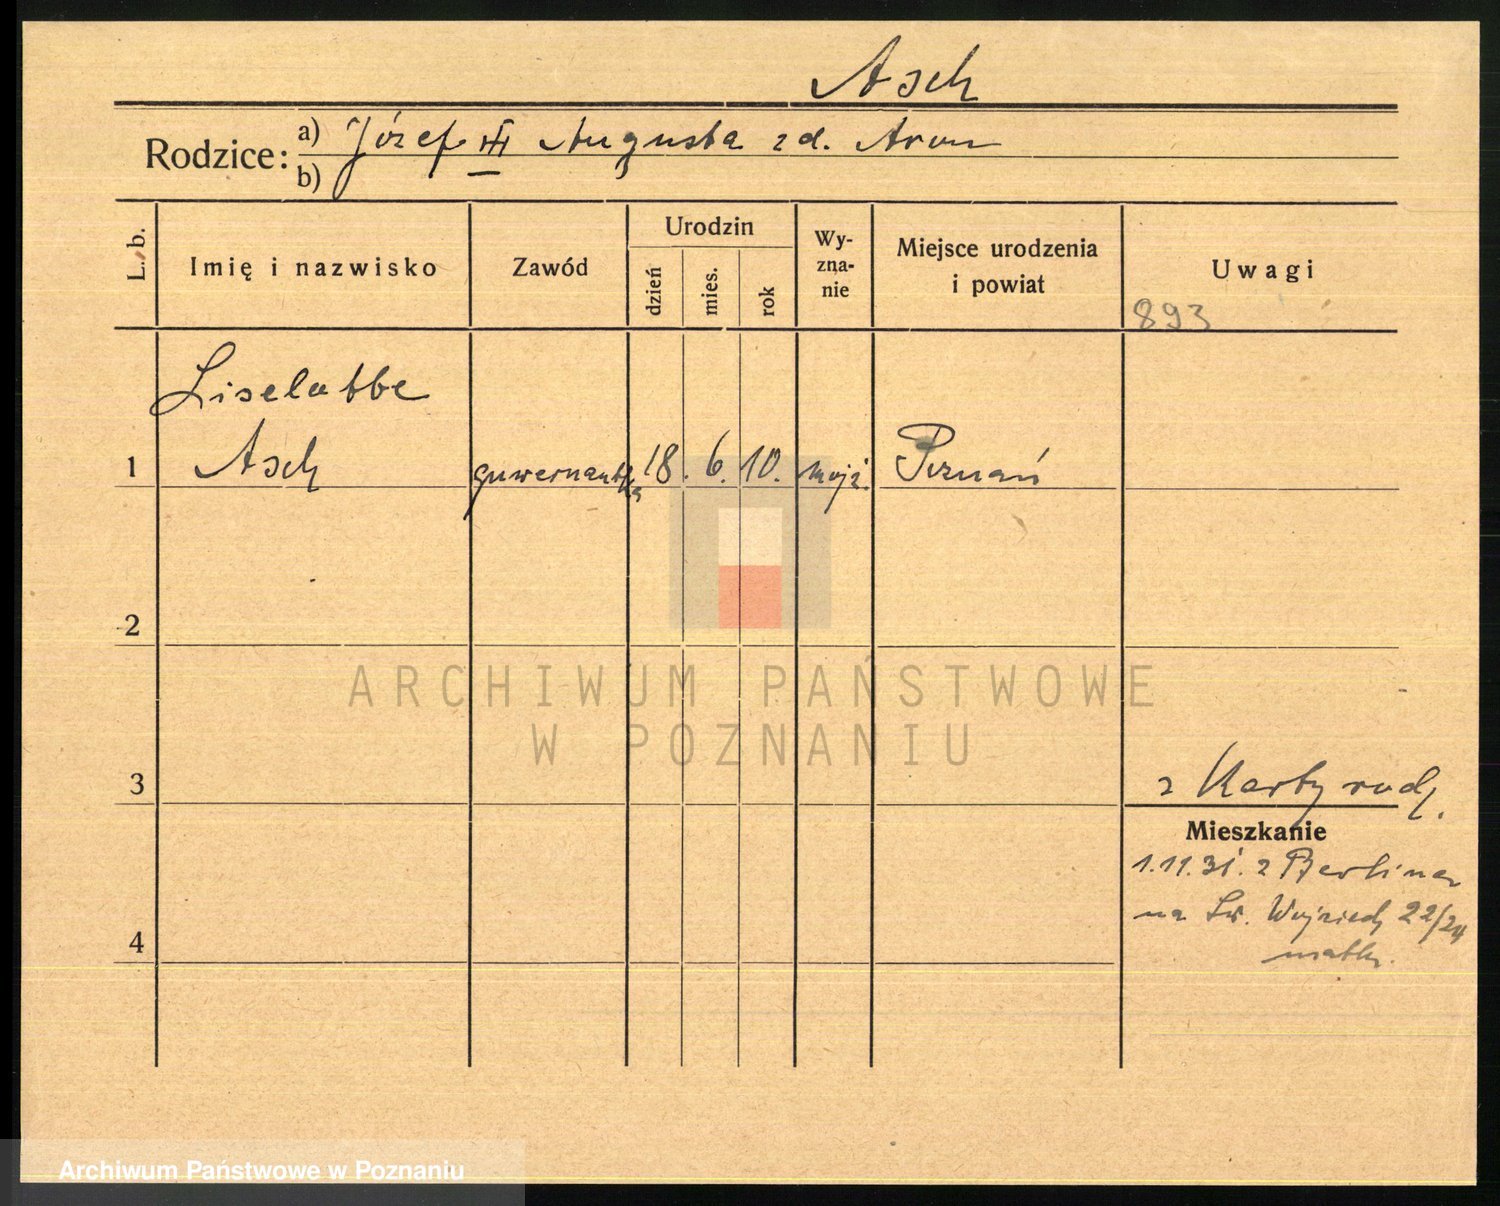 Asch
Rodzice:
a) Józef III Augusta zd. Aron
b)
L. b.
Imię i nazwisko
Zawód
Urodzin
dzień
mies.
rok
Wy-
zna-
nie
Miejsce urodzenia
i powiat
Uwagi
893
Liselotte
Asch
1
guwernantka
18. 6. 10.
mojż.
Poznań
2
ARCHIWUM PAŃSTWOWE
W POZNANIU
3
z Karty rodz.
Mieszkanie
1.11.31. z Berlina
na Św. Wojciech 22/24
matka.
4
Archiwum Państwowe w Poznaniu